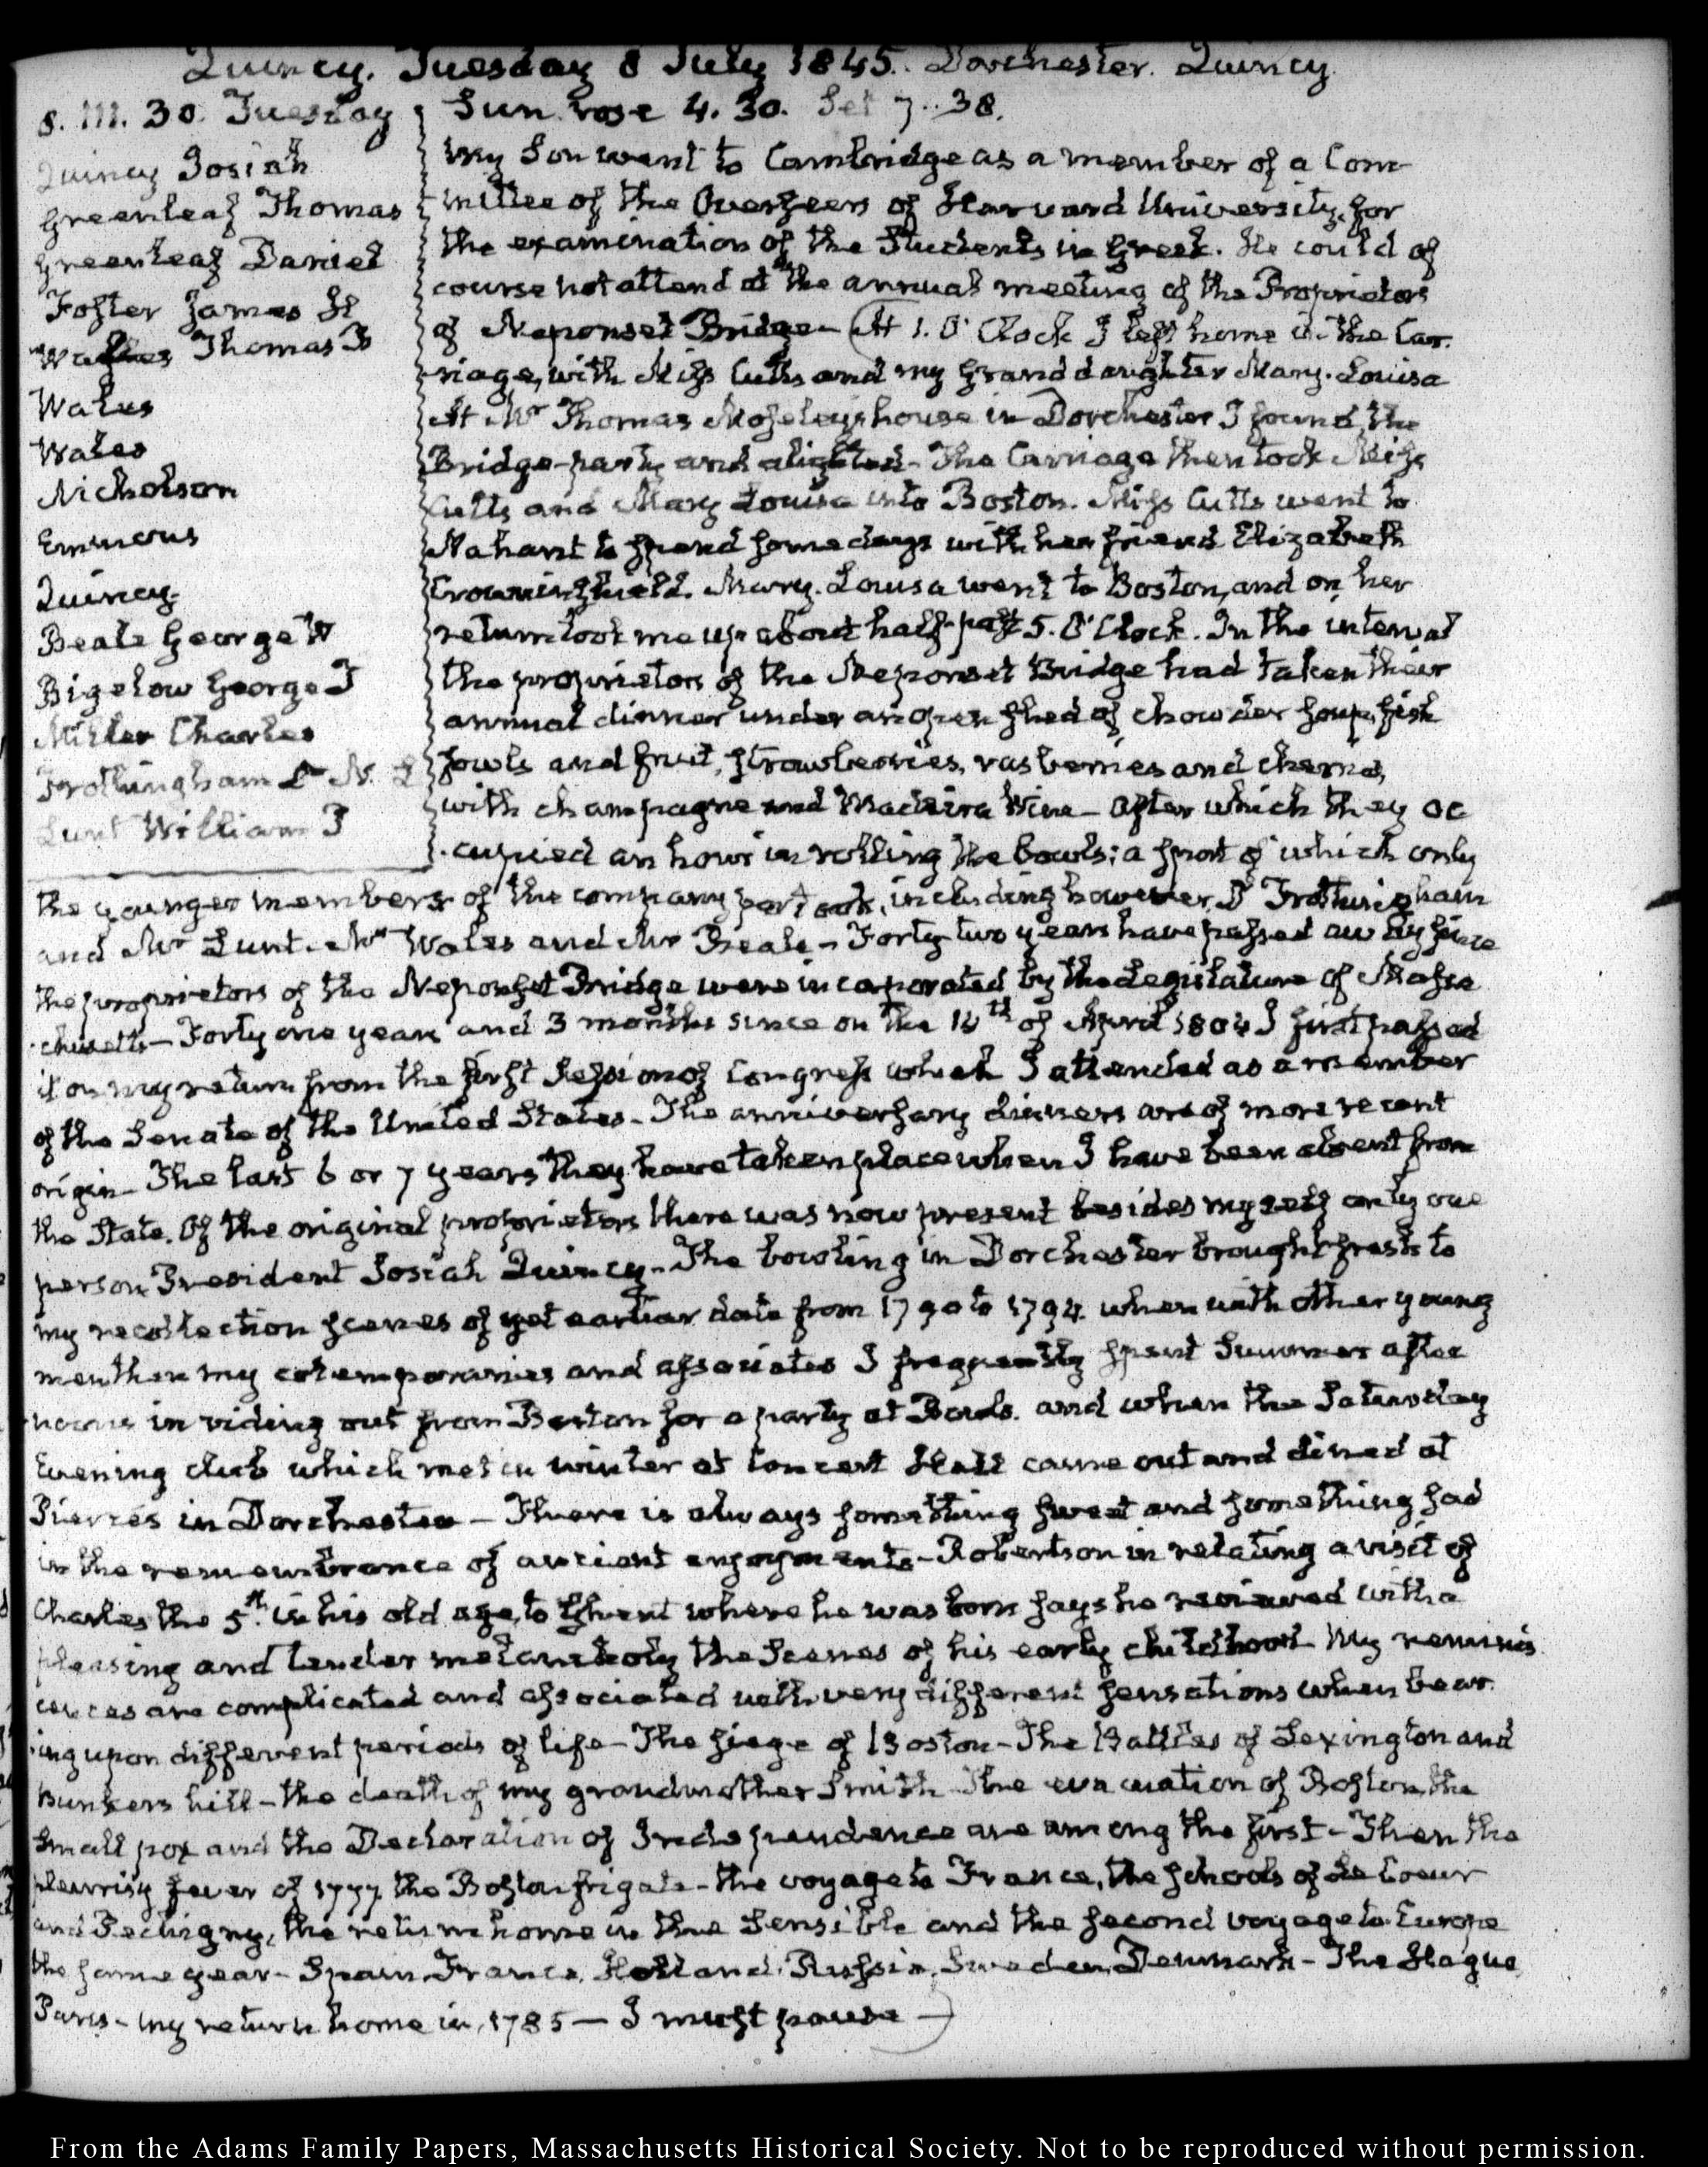 Quincy. Tuesday 8 July 1845. Dorchester. Quincy
8. III. 30. Tuesday
Quincy Josiah
Greenleaf Thomas
Greenleaf Daniel
Foster James H
Thomas B
Wales
Wales
Nicholson
Emmons
Quincy
Beale George W
Bigelow George T
Miller Charles
Frothingham N. L
Lunt William P
Sun rose 4. 30. Set 7. 38.
My Son went to Cambridge as a member of a Com
mittee of the Overseers of Harvard University, for
the examination of the Students in Greek. He could of
course not attend at the annual meeting of the Proprietors
of Neponset Bridge— At 1. O'Clock I left home in the Car.
riage, with Miss Cutts and my Grand daughter Mary-Louisa
At Mr Thomas Moseley's house in Dorchester I found the
Bridge-party and alighted— The Carriage then took Miss
Cutts and Mary Louisa into Boston. Miss Cutts went to
Nahant to spend some days with her friend Elizabeth
Crowninshield. Mary-Louisa went to Boston, and on her
return took me up about half-past 5. O'Clock. In the interval
the proprietors of the Neponset Bridge had taken their
annual dinner under an open shed of, chowder soup, fish
fowls and fruit, strawberries, rasberries and cherries,
with champagne and Madeira Wine— after which they oc
cupied an hour in rolling the bowls; a sport of which only
the younger members of the company partook, including however, Dr Frothingham
and Mr Lunt. Mr Wales and Mr Beale— Forty two years have passed away since
the proprietors of the Neponset Bridge were incorporated by the Legislature of Massa
chusetts— Forty one years and 3 months since on the 10th of April 1804 I first passed
it on my return from the first Session of Congress which I attended as a member
of the Senate of the United States— The anniversary dinners are of more recent
origin— The last 6 or 7 years they have taken place when I have been absent from
the State. Of the original proprietors there was now present besides myself only one
person President Josiah Quincy— The bowling in Dorchester brought fresh to
my recollection scenes of yet earlier date from 1790 to 1794. when with other young
men then my cotemporaries and associates I frequently spent Summer after
noons in riding out from Boston for a party at Bowls. and when the Saturday
Evening club which met in winter at Concert Hall came out and dined at
in Dorchester— There is always something sweet and something sad
in the remembrance of ancient enjoyments— Robertson in relating a visit of
Charles the 5th in his old age, to Ghent where he was born says he reviewed with a
pleasing and tender melancholy the Scenes of his early childhood— My reminis
cences are complicated and associated with very different sensations when bear
ing upon different periods of life— The siege of Boston— The Battles of Lexington and
Bunkers hill— the death of my grandmother Smith— The evacuation of Boston, the
Small pox and the Declaration of Independence are among the first— Then the
pleurisy fever of 1777 the Boston frigate— the voyage to France, the schools of Le Coeur
and Pechigny, the return home in the Sensible and the second voyage to Europe
the same year— Spain, France, Holland, Russia, Sweden, Denmark— The Hague
Paris— my return home in, 1785— I must pause—
From the Adams Family Papers, Massachusetts Historical Society. Not to be reproduced without permission.